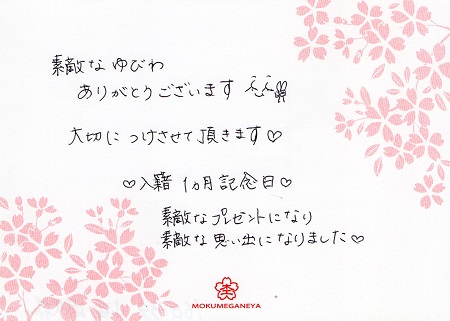 素敵な ゆびわ
ありがとうございます
大切に つけさせて頂きます♡
♡入籍 1ヵ月 記念日♡
素敵なプレゼントになり
素敵な思い出になりました♡
MOKUMEGANEYA